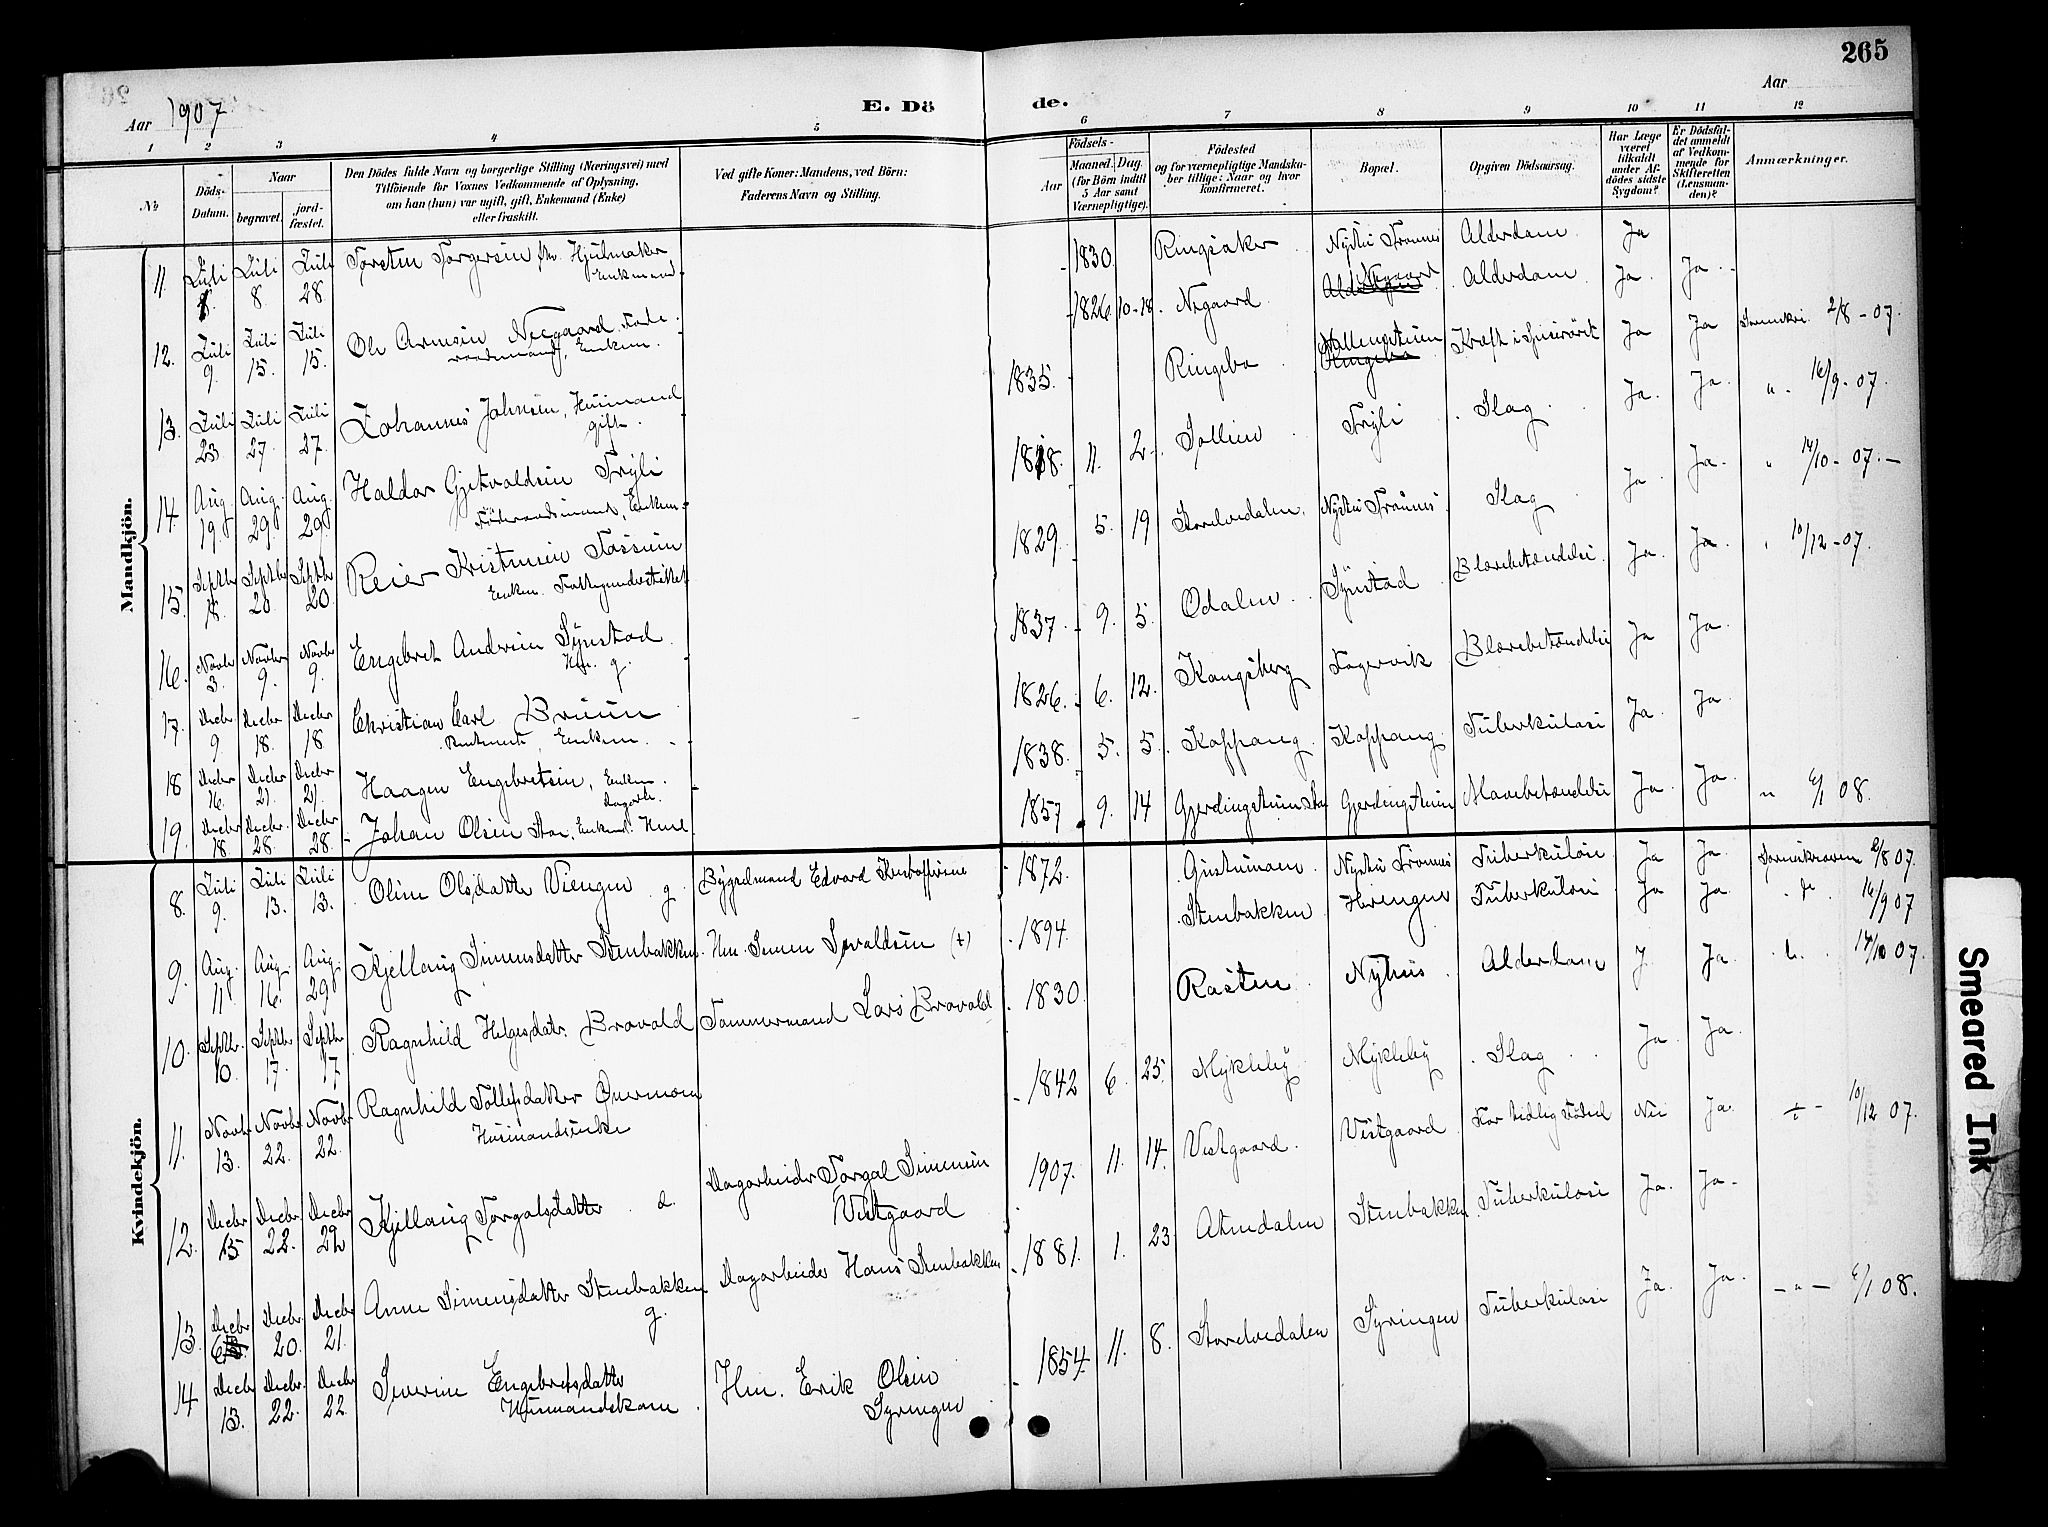 265
Aar 1907
E. Dö de.
Aar
1 2 3 4 5 6 7 8 9 10 11 12
No
Döds-Datum.
Naar
begravet.
jord-fæstet.
Den Dödes fulde Navn og borgerlige Stilling (Næringsvei) med
Tilföiende for Voxnes Vedkommende af Oplysning,
om han (hun) var ugift, gift, Enkemand (Enke)
eller fraskilt.
Ved gifte Koner: Mandens, ved Börn:
Faderens Navn og Stilling.
Födsels-
Aar
Maaned. Dag.
(for Börn indtil
5 Aar samt
Værnepligtige).
Födested
og for værnepligtige Mandska-
ber tillige: Naar og hvor
konfirmeret.
Bopæl.
Opgiven Dödsaarsag.
Har Læge
været
tilkaldt
under Af-
dödes sidste
Sygdom?
Er Dödsfal-
det anmeldt
af Vedkom-
mende for
Skifteretten
(Lensman-
den)?
Anmærkninger.
Mandkjön.
11. Juli Juli 8. Juli 28 Torsten Torgersen Hjulmaker Enkemand 1830. Ringsaker Alderdom Ja
12. Juli 9. Juli 15. Juli 15. Ole Arnesen Negaard Enkem. 1826 10-18. Negaard Alderdom Ja. Ja
13. Juli 23 Juli 27. Juli 27. Johannes Johnsen, Husmand gift. 1835. Ringebu Kræft i Spiserøret Ja Ja 2/8-07.
14. Aug. 19. Aug. 29. Aug. 29. Haldor Trýli Enkem. 1818. 11. 2. Sollien Trýli Slag Ja. Ja. " 16/9-07.
15. Septbr 18. Septbr 20. Septbr 20. Reier Kristensen Fossum Enkem. 1829. 5. 19 Storelvedalen. Slag Ja. Ja. " 14/10-07.
16. Novbr 3. Novbr 9. Novbr 9. Engebret Andersen Sýnstad g. 1837. 9. 5. Odalen Sýnstad Blærebetændelse Ja. Ja. " 10/12-07.
17. Decbr 9. Decbr 18. Decbr 18 Christian Carl Bruun Enkem. 1826. 6. 12. Kongsberg Fagervik Blærebetændelse Ja Ja.
18 Decbr 16. Decbr 21. Decbr 21. Haagen Engebretsen, Enkem. Dagarb. 1838. 5. 5. Koppang Koppang Tuberkulose Ja. Ja.
19. Decbr 18. Decbr. 28. Decbr 28. Johan Olsen 1857. 9. 14 Gjerdingstuen Mavebetændelse Ja. Ja. " 6/1 08.
Kvindekjön.
8. Juli 9. Juli 13. Juli 13. Oline Olsdatter Viengen g. Edvard 1872. Tuberkulose Ja Ja. 2/8 07.
9. Aug. 11 Aug. 16. Aug. 29 Kjellaug Simensdatter Stenbakken. Hm. Simen (+) 1894. Stenbakken Tuberkulose Ja Ja. 16/9 07
10. Septbr. 10. Septbr 17. Septbr 17 Ragnhild Helgesdatr. Brovold Tømmermand Lars Brovold 1830. Rasten Nyhus Alderdom J. Ja 14/10 07.
11. Novbr 13. Novbr 22. Novbr 22. Ragnhild Tollefsdatter Øvermoen Husmandsenke 1842 6. 25. Mýkleby Mýkleby Slag Ja. Ja.
12. Decbr 15 Decbr. 22. Decbr 22 Kjellaug Torgalsdatter Dagarbeider Torgal Simensen Vestgaard 1907. 11. 14. Vestgaard. Vestgaard For tidlig Fødsel Nei Ja. 10/12 07.
13. Decbr Decbr. 20. Decbr 21. Anne Simensdatter Stenbakken g. Dagarbeider Hans Stenbakken 1881. 1. 23. Atnedalen Stenbakken Tuberkulose Ja. Ja.
14 Decbr 13. Decbr. 22. Decbr 22. Severine Engebretsdatter Husmandskone Hm. Erik Olsen Sýringen 1854. 11. 8. Storelvedalen Sýringen Tuberkulose Ja. Ja. - " - 6/1 08.
Smeared Ink